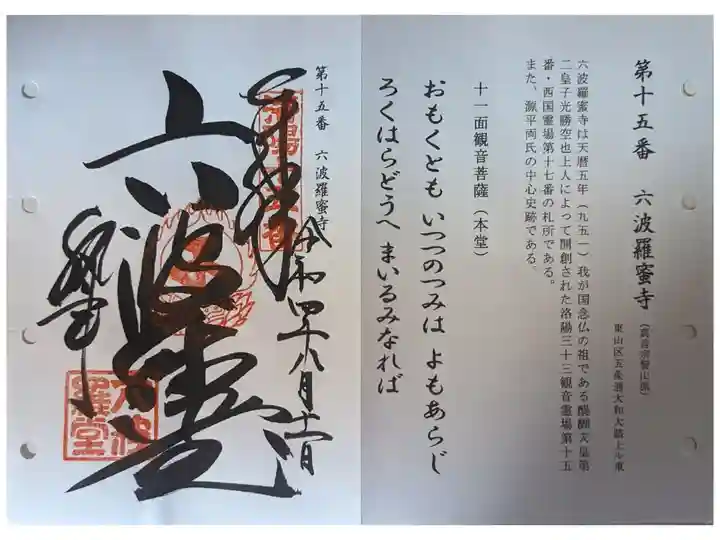 第十五番 六波羅蜜寺
(真言宗智山派)
東山区五条通大和大路上ル東
六波羅蜜寺は天暦五年(九五一)我が国念仏の祖である醍醐天皇第
二皇子光勝空也上人によって開創された洛陽三十三観音霊場第十五
番・西国霊場第十七番の札所である。
また、源平両氏の中心史跡である。
十一面観音菩薩(本堂)
おもくとも いつつのつみは よもあらじ
ろくはらどうへ まいるみなれば
第十五番 六波羅蜜寺
奉拝
令和四年八月十一日
六波羅堂